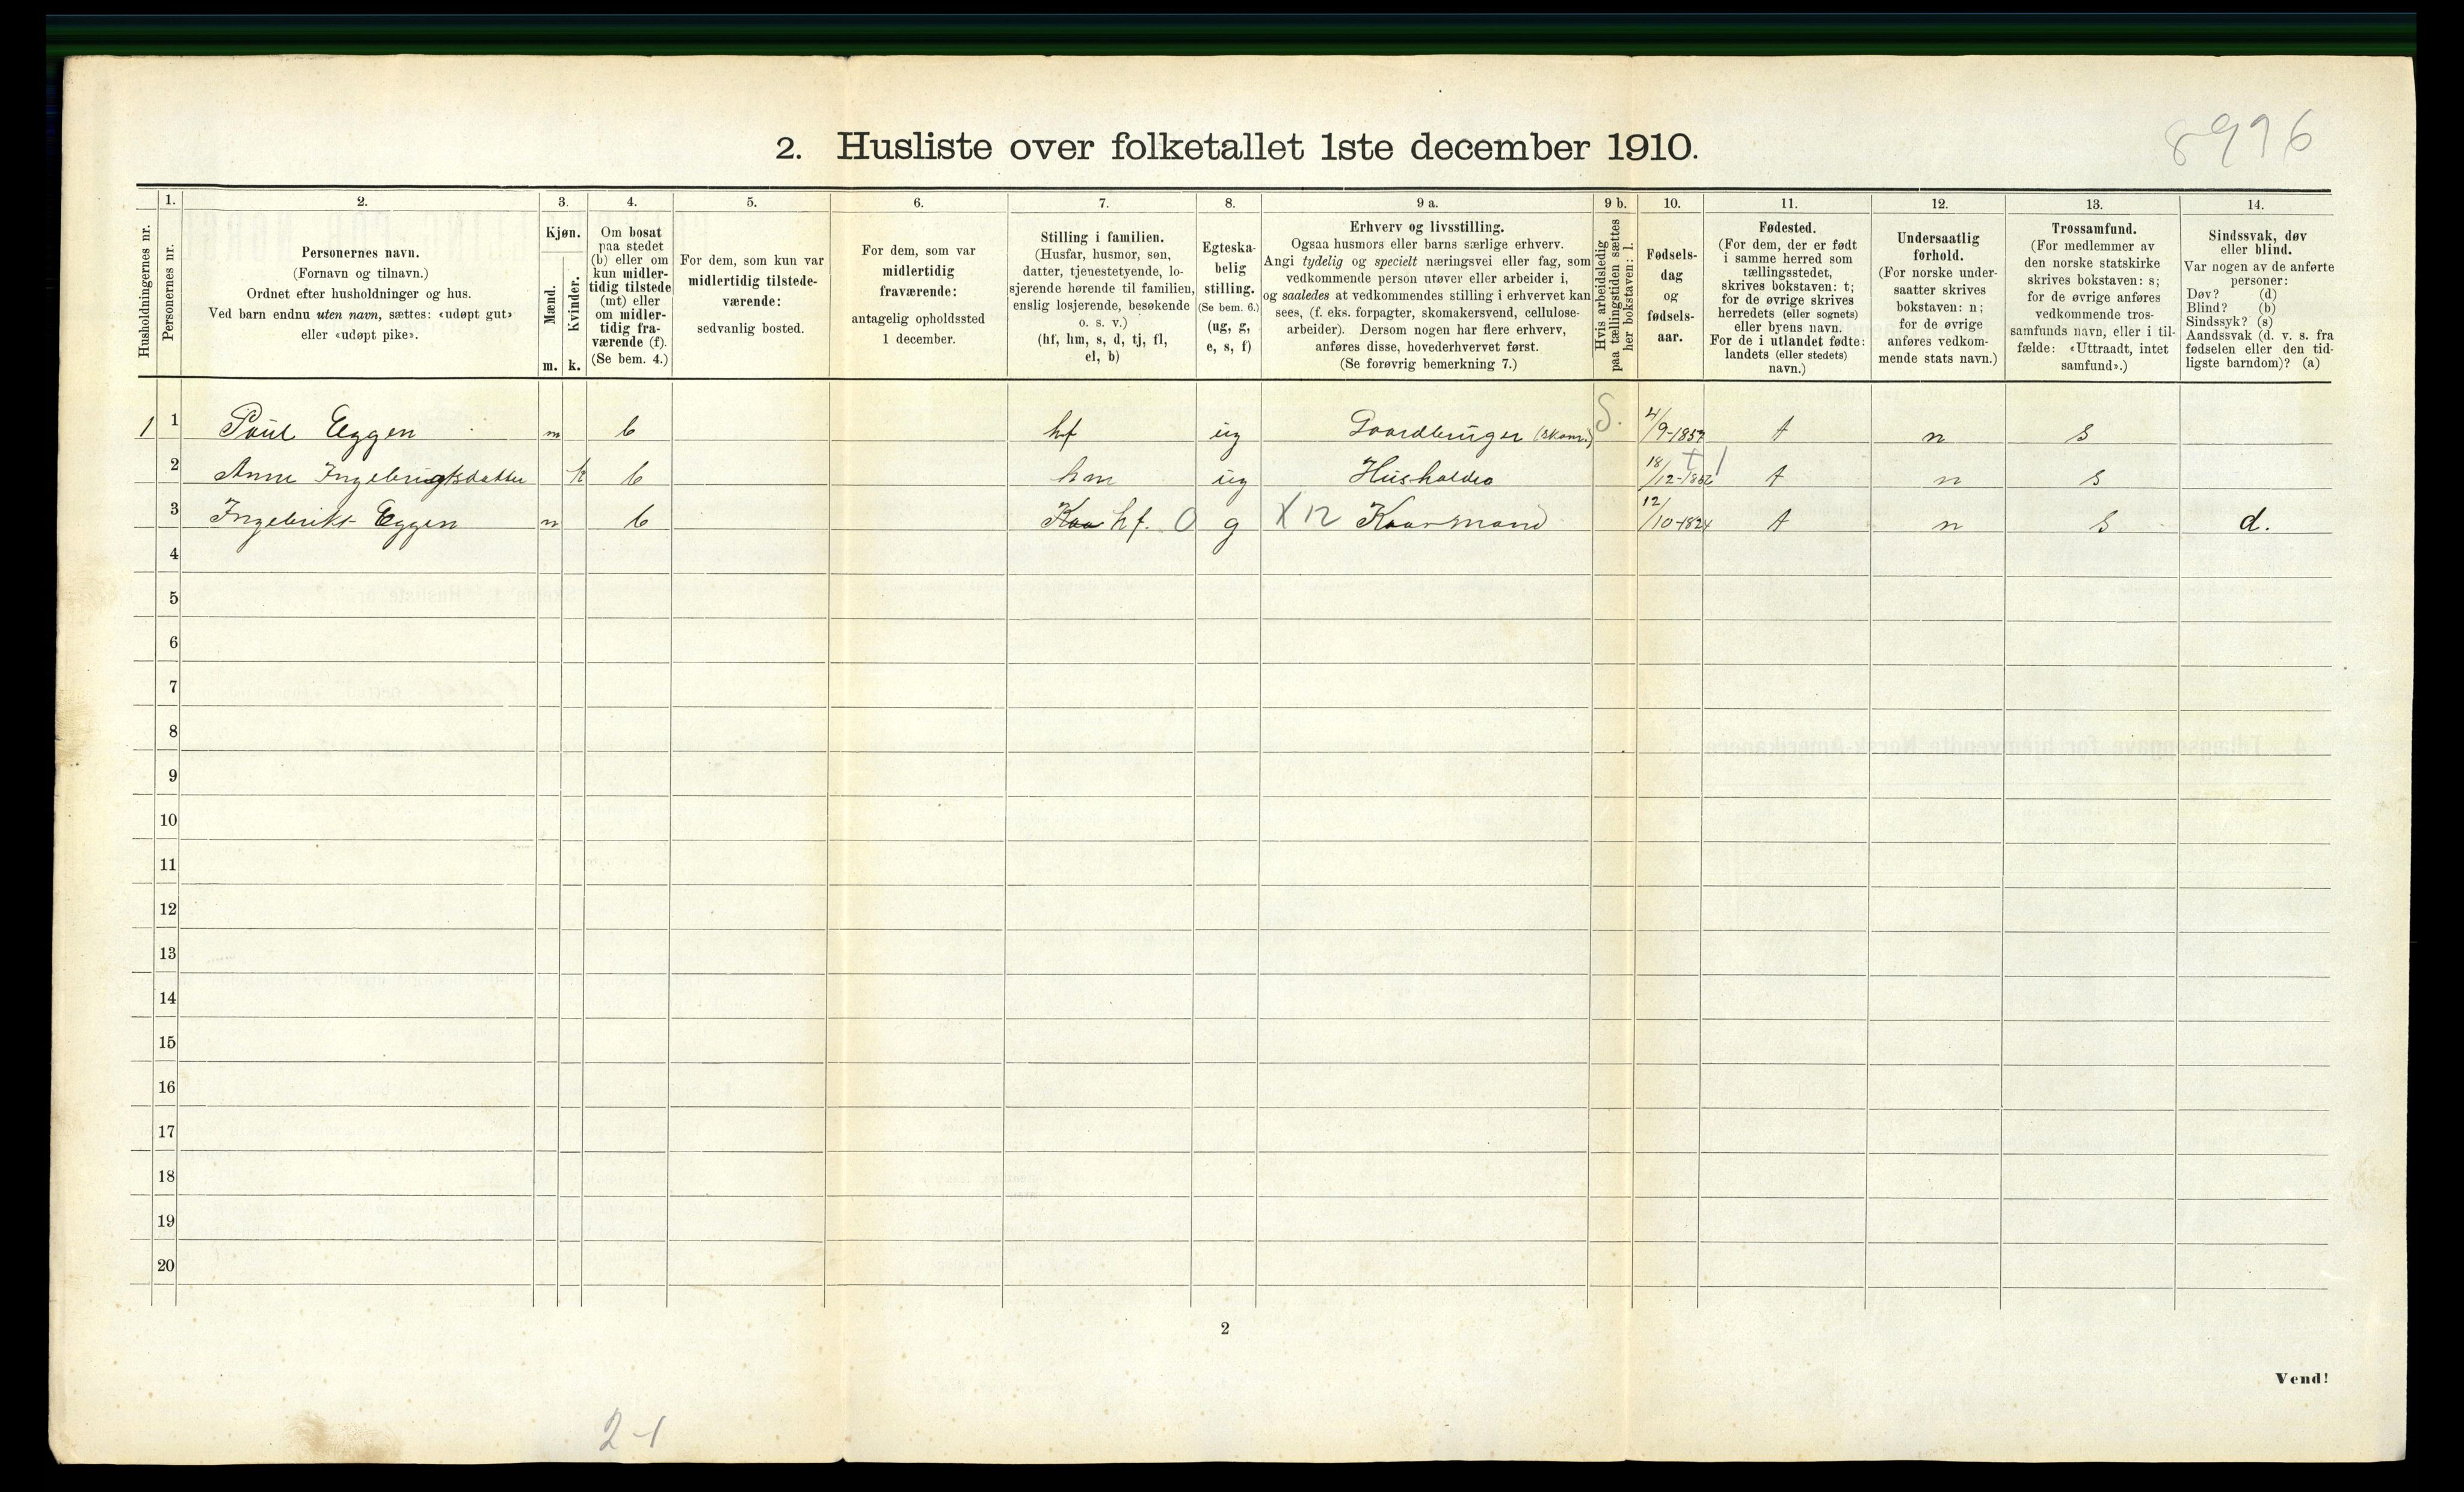 8996
2. Husliste over folketallet 1ste december 1910.
Husholdningernes nr.
1.
Personernes nr.
2.
Personernes navn.
(Fornavn og tilnavn.)
Ordnet efter husholdninger og hus.
Ved barn endnu uten navn, sættes: «udøpt gut»
eller «udøpt pike».
3.
Kjøn.
Mænd.
m.
Kvinder.
k.
4.
Om bosat
paa stedet
(b) eller om
kun midler-
tidig tilstede
(mt) eller
om midler-
tidig fra-
værende (f).
(Se bem. 4.)
5.
For dem, som kun var
midlertidig tilstede-
værende:
sedvanlig bosted.
6.
For dem, som var
midlertidig
fraværende:
antagelig opholdssted
1 december.
7.
Stilling i familien.
(Husfar, husmor, søn,
datter, tjenestetyende, lo-
sjerende hørende til familien,
enslig losjerende, besøkende
o. s. v.)
(hf, hm, s, d, tj, fl,
el, b)
8.
Egteska-
belig
stilling.
(Se bem. 6.)
(ug, g,
e, s, f)
9 a.
Erhverv og livsstilling.
Ogsaa husmors eller barns særlige erhverv.
Angi tydelig og specielt næringsvei eller fag, som
vedkommende person utøver eller arbeider i,
og saaledes at vedkommendes stilling i erhvervet kan
sees, (f. eks. forpagter, skomakersvend, cellulose-
arbeider). Dersom nogen har flere erhverv,
anføres disse, hovederhvervet først.
(Se forøvrig bemerkning 7.)
9 b.
Hvis arbeidsledig
paa tællingstiden sættes
her bokstaven: l.
10.
Fødsels-
dag
og
fødsels-
aar.
11.
Fødested.
(For dem, der er født
i samme herred som
tællingsstedet,
skrives bokstaven: t;
for de øvrige skrives
herredets (eller sognets)
eller byens navn.
For de i utlandet fødte:
landets (eller stedets)
navn.)
12.
Undersaatlig
forhold.
(For norske under-
saatter skrives
bokstaven: n;
for de øvrige
anføres vedkom-
mende stats navn.)
13.
Trossamfund.
(For medlemmer av
den norske statskirke
skrives bokstaven: s;
for de øvrige anføres
vedkommende tros-
samfunds navn, eller i til-
fælde: «Uttraadt, intet
samfund».)
14.
Sindssvak, døv
eller blind.
Var nogen av de anførte
personer:
Døv? (d)
Blind? (b)
Sindssyk? (s)
Aandssvak (d. v. s. fra
fødselen eller den tid-
ligste barndom)? (a)
1 1 Paul Eggen m b hf ug Gaardbruger S. 4/9-1857 t n s
2 Anne Ingebrigtsdatter k b hm ug Husholder 18/12-1862 t n s
3 Ingebrikt Eggen m b Kaa hf. 0 g X 12 Kaarmand 12/10-1824 t n s d.
4
5
6
7
8
9
10
11
12
13
14
15
16
17
18
19
20
2
Vend!
2-1